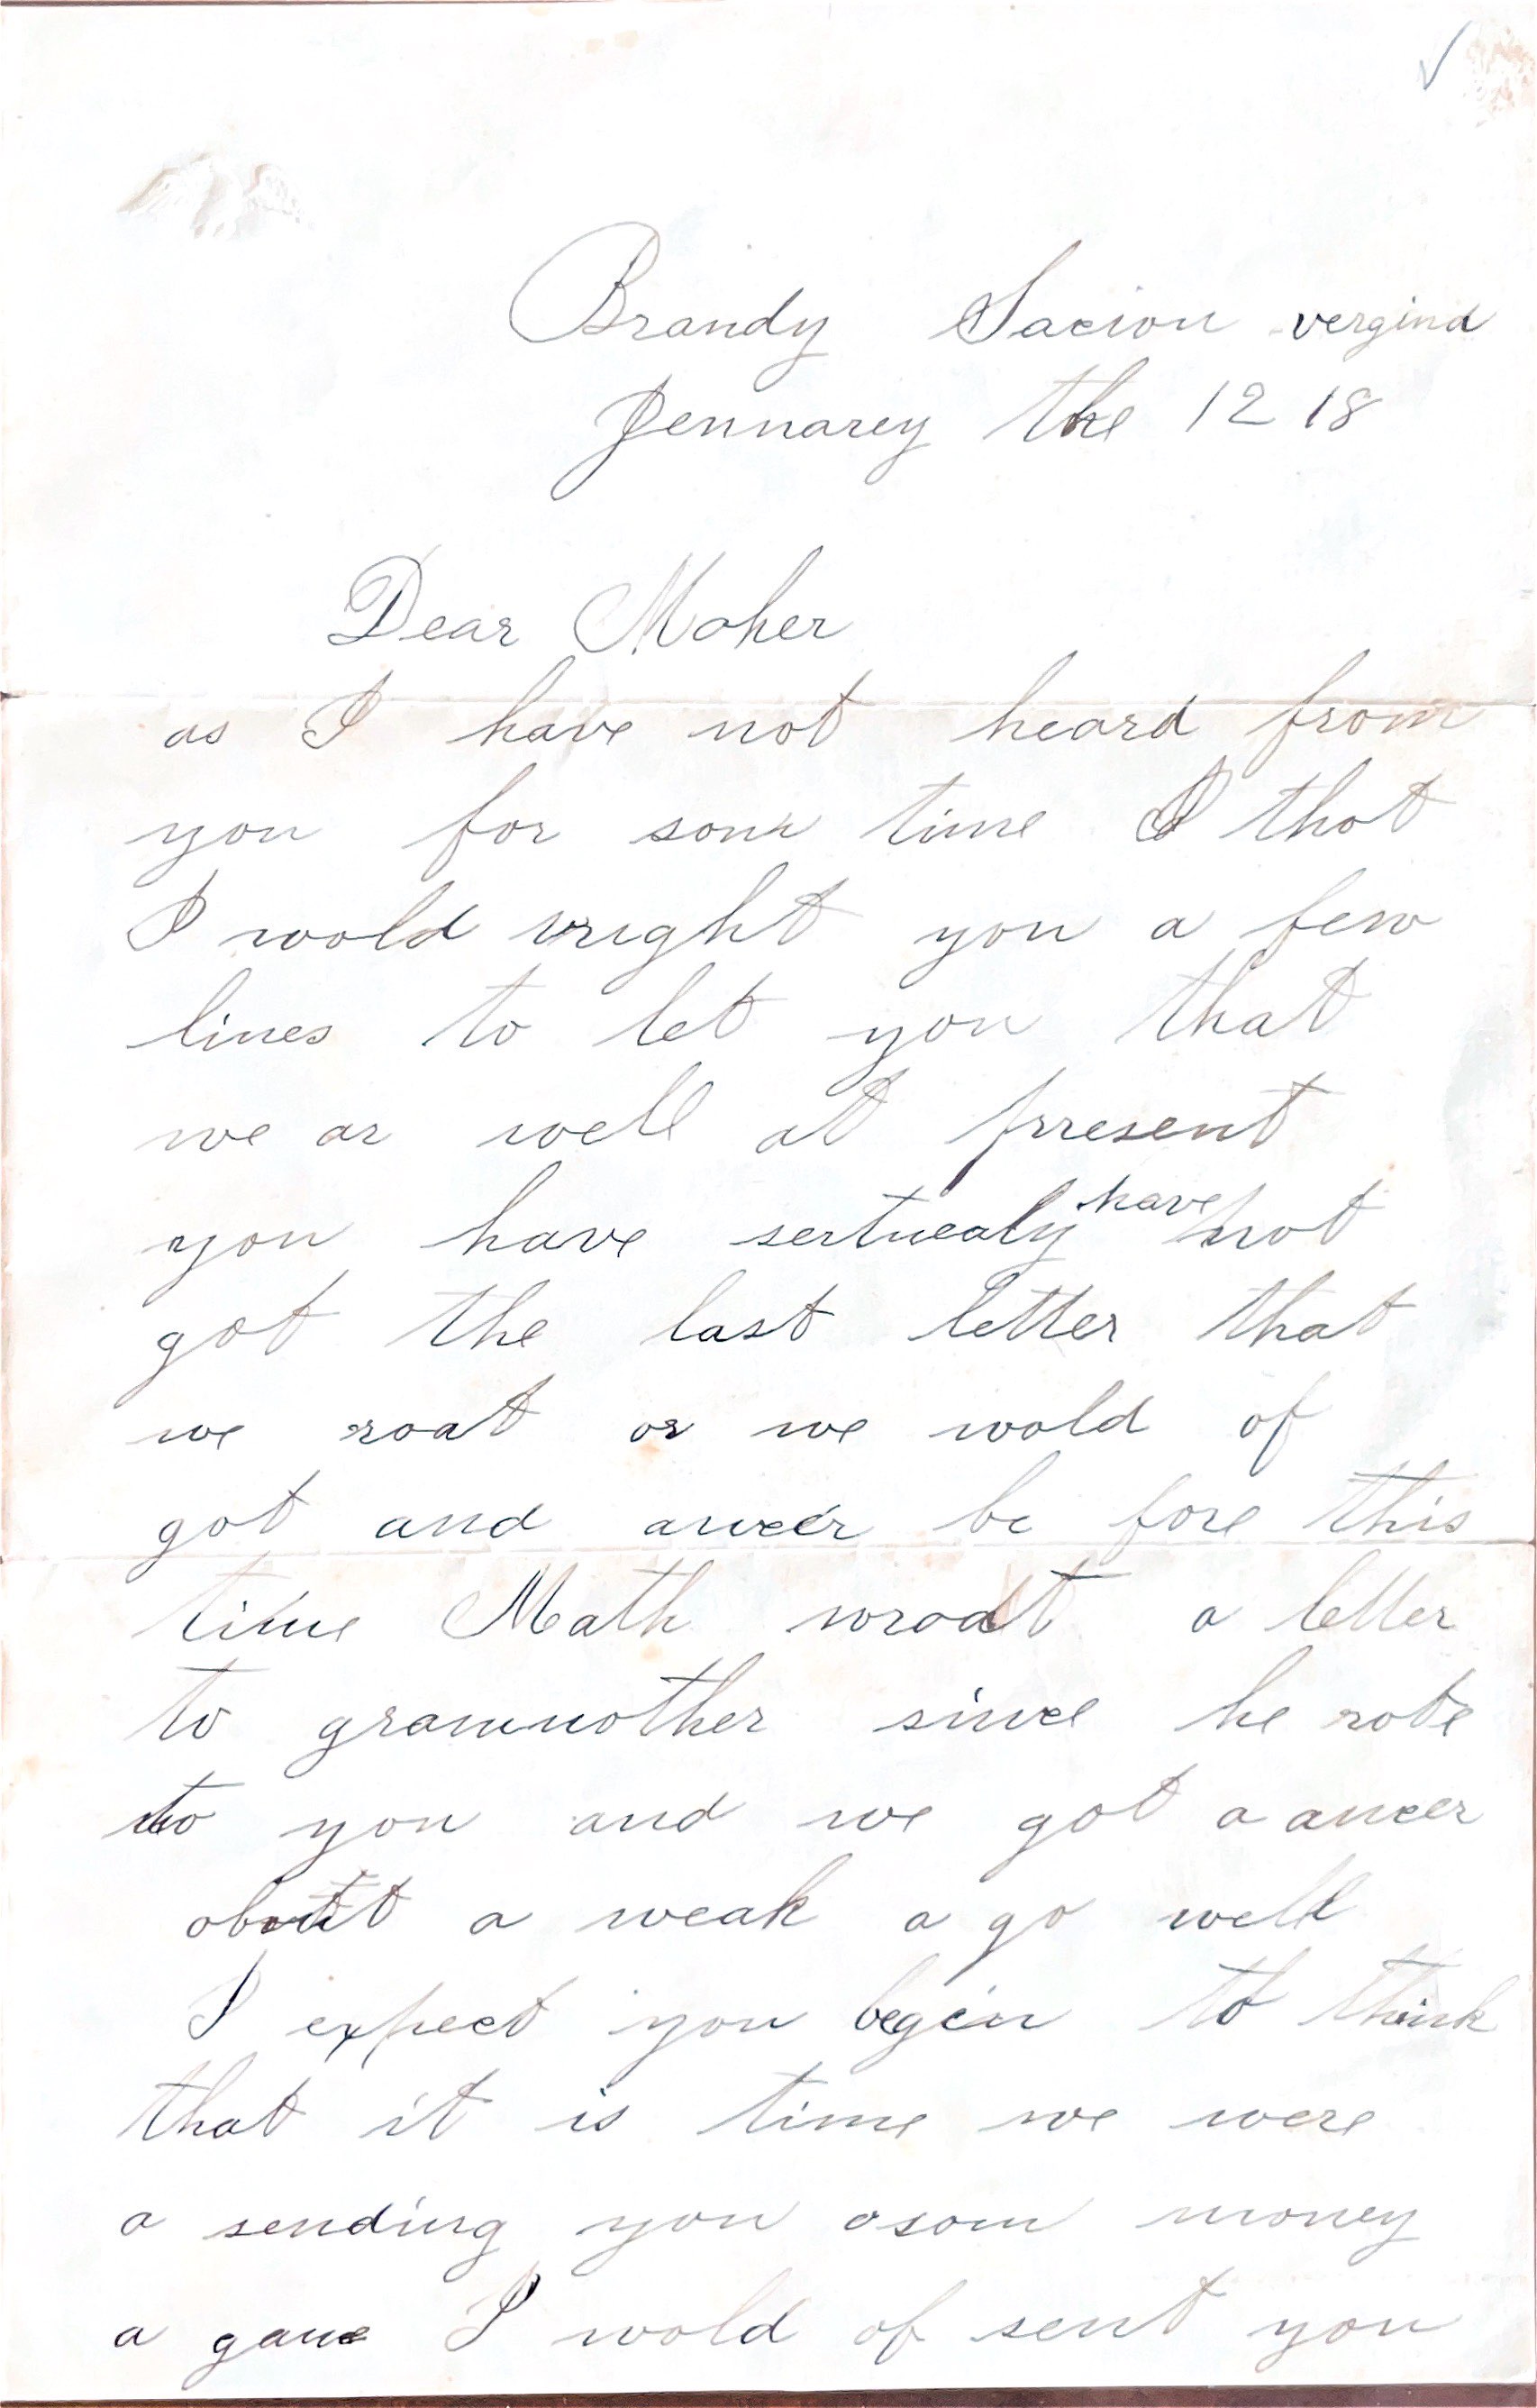 Brandy Sacion vergina
Jennarey the 12 18
Dear Moher
as I have not heard from
you for som time I thot
I wold wright you a few
lines to let you that
we ar well at present
you have sertnealy have not
got the last letter that
we roat or we wold of
got and aweer be fore this
time Math wroat a letter
to grammother since he rote
to you and we got a aneer
about a weak a go well
I expect you begin to think
that it is time we were
a sending you som money
a gane I wold of sent you